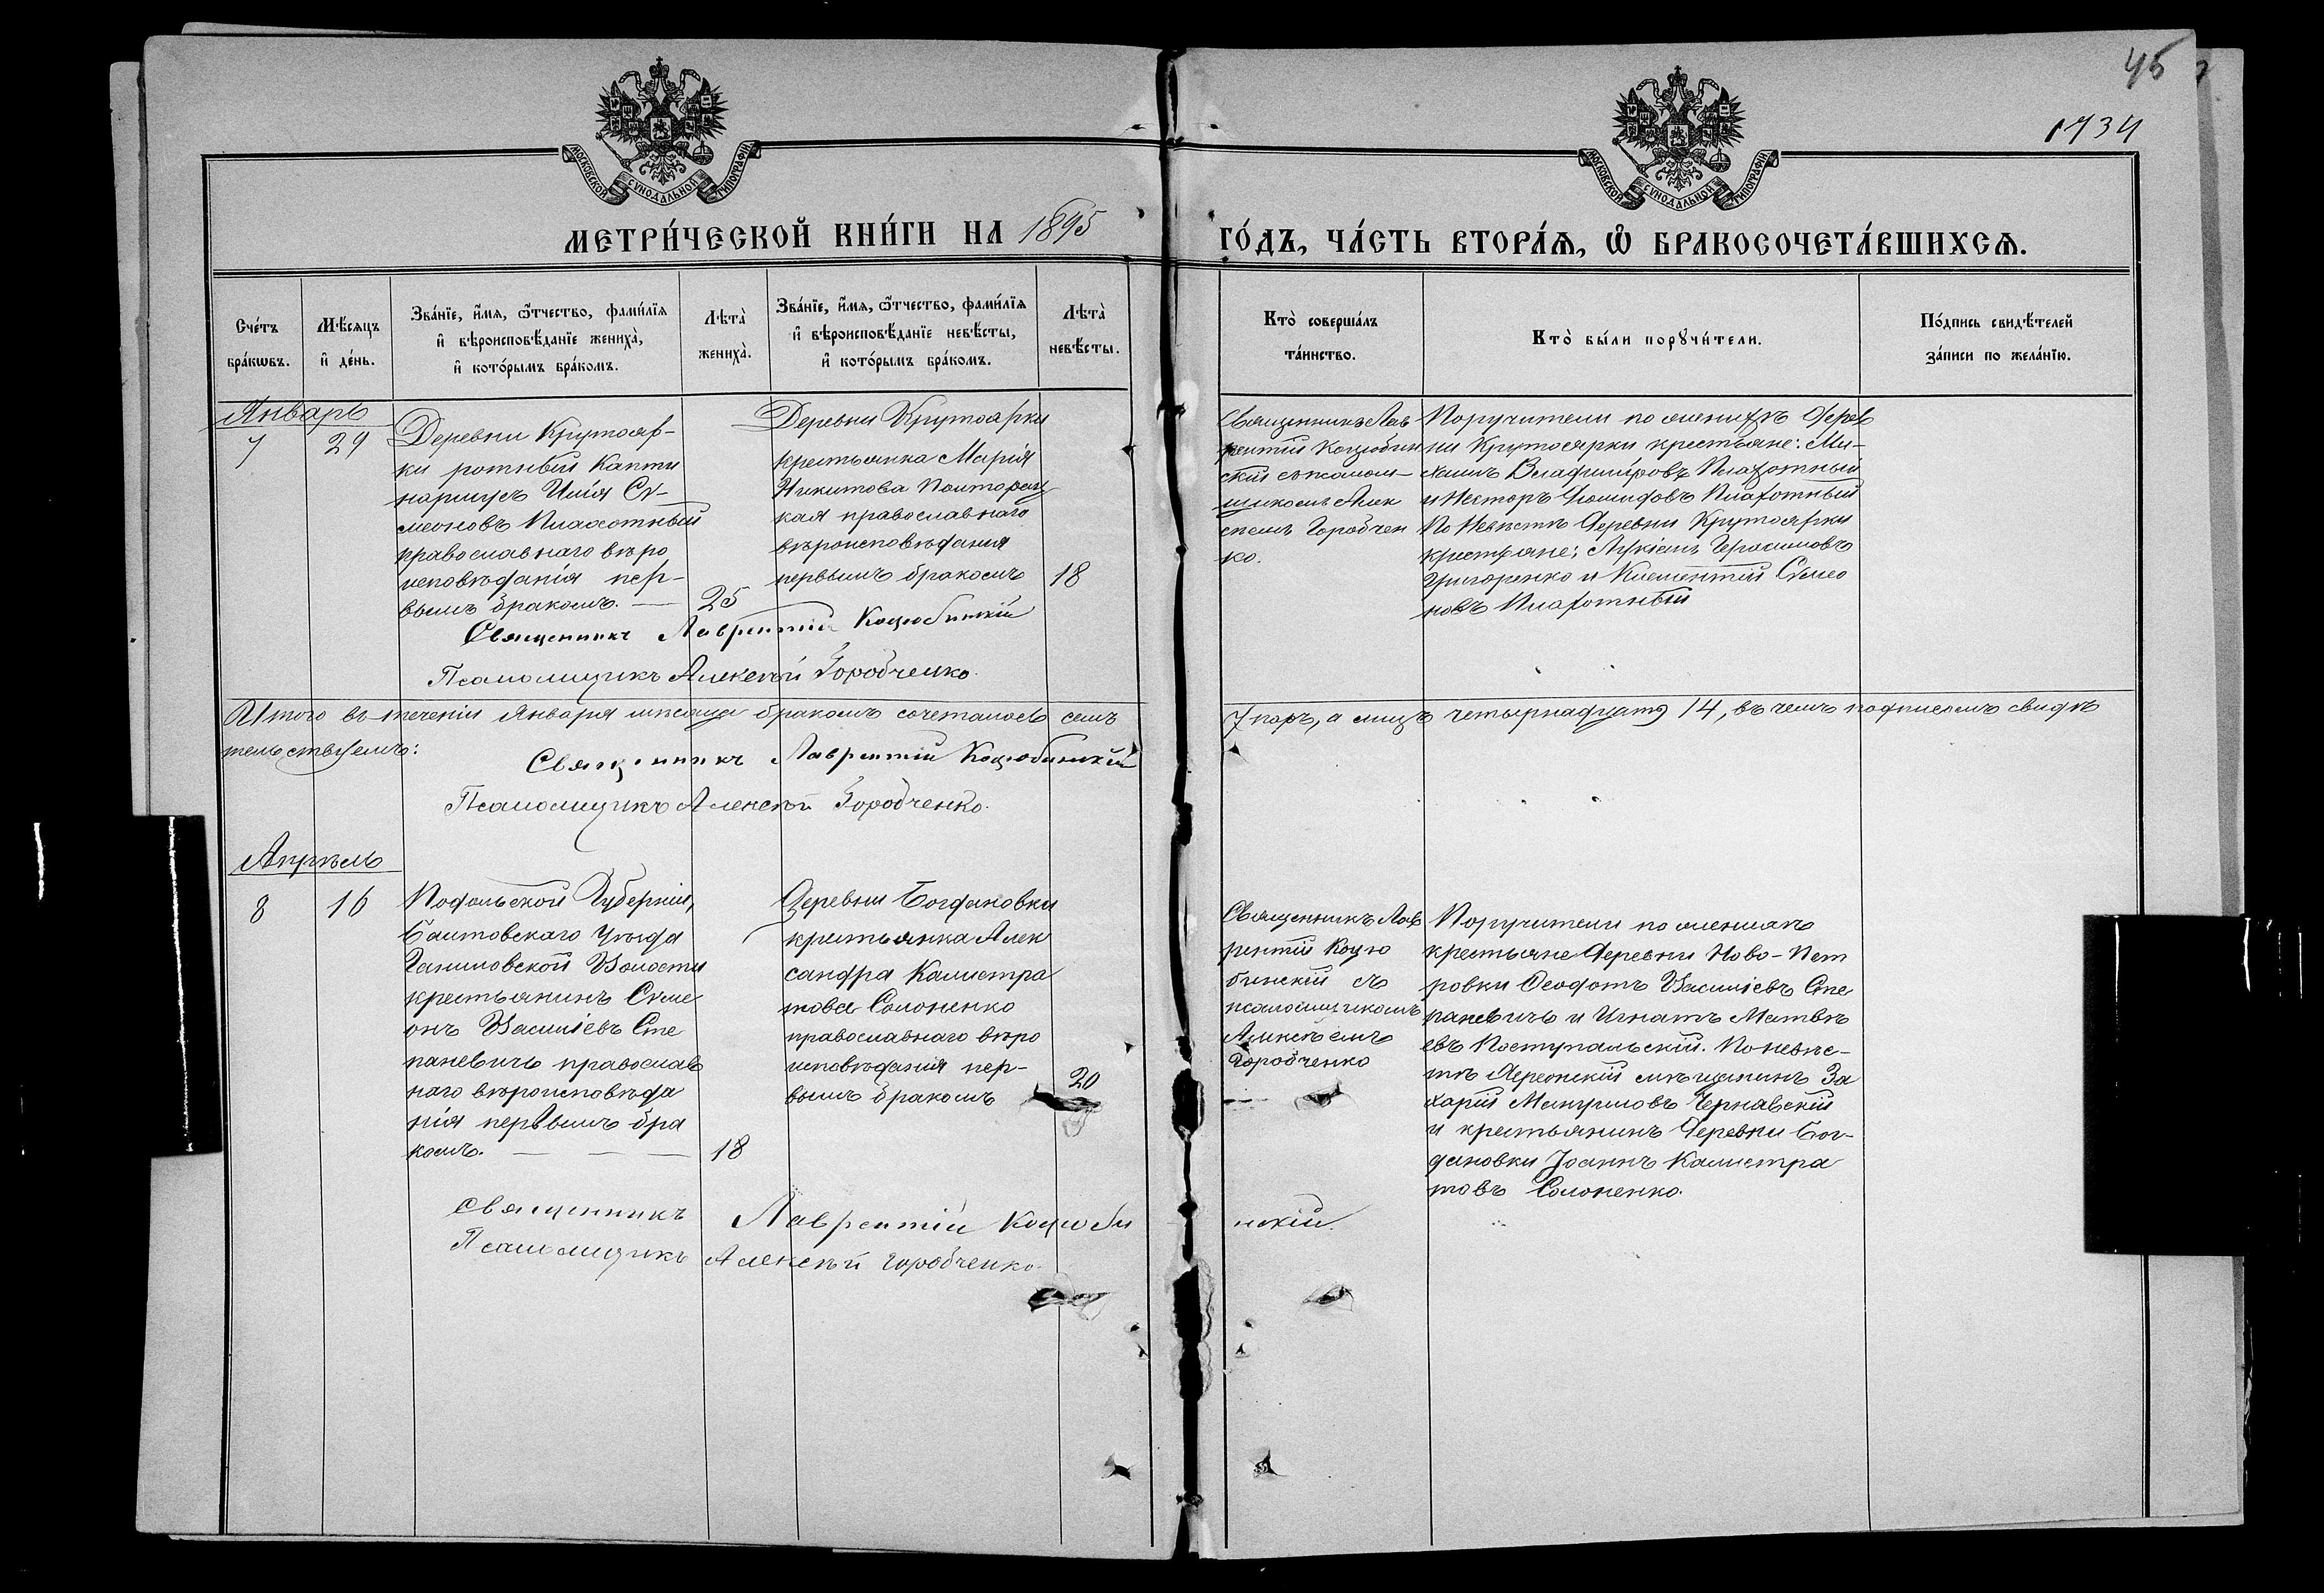 45
1734
МОСКОВСКОЙ СѴНОДАЛЬНОЙ ТИПОГРАФІИ
МОСКОВСКОЙ СѴНОДАЛЬНОЙ ТИПОГРАФІИ
МЕТРИ́ЧЕСКОЙ КНИ́ГИ НА 1895 ГО́ДЪ, ЧА́СТЬ ВТОРА́Ѧ, Ѡ БРАКОСОЧЕТА́ВШИХСѦ.
Сче́тъ
бра́кѡвъ.
Мѣ́сѧцъ
и҆ де́нь.
Зва́нїе, и҆́мѧ, ѻ҆́тчество, фами́лїѧ
и҆ вѣроисповѣ́данїе жениха̀,
и҆ кото́рымъ бра́комъ.
Лѣта̀
жениха̀.
Зва́нїе, и҆́мѧ, ѻ҆́тчество, фами́лїѧ
и҆ вѣроисповѣ́данїе невѣ́сты,
и҆ кото́рымъ бра́комъ.
Лѣта̀
невѣ́сты.
Кто̀ соверша́лъ
та́инство.
Кто̀ бы́ли порꙋчи́тели.
По́дпись свидѣ́телей
за́писи по жела́нїю.
Январь
7
29
Деревни Крутояр-
ки ротный Капти
нармусъ Илія Сѵ-
меоновъ Плахотный
православнаго вѣро
исповѣданія пер-
вымъ бракомъ. —
25
Деревни Крутоярки
крестьянка Марія
Никитова Полторац
кая православнаго
вѣроисповѣдания
первымъ бракомъ
18
Священникъ Лав
рентій Коцюбин
скій съ псалом-
щикомъ Алек
сѣемъ Горобчен
ко.
Поручители по женихѣ Дерев
ни Крутоярки крестьяне: Ми-
хаилъ Владиміровъ Плахотный
и Несторъ Іосифовъ Плахотный
По Невѣстѣ Деревни Крутоярки
крестьяне: Лукіанъ Герасимовъ
Григоренко и Климентій Сѵмео
новъ Плахотный
Священникъ Лаврентій Коцюбинскій
Псаломщикъ Алексѣй Горобченко.
Итого въ теченіи Января мѣсяца бракомъ сочеталось семъ 7 паръ, а лицъ четырнадцать 14, въ чемъ подписомъ свидѣ
тельствуемъ:
Священникъ Лаврентій Коцюбинскій
Псаломщикъ Алексѣй Горобченко.
Апрѣль
8
16
Подольской Губерніи,
Балтовскаго Уѣзда
Гапиловской Волости
крестьянинъ Сѵме
онъ Василіевъ Сте
паневичъ православ
наго вѣроисповѣда
нія первымъ бра
комъ. — — —
18
Деревни Богдановки
крестьянка Алек
сандра Калистра
това Солоненко
православнаго вѣро
исповѣданія пер-
вымъ бракомъ
20
Священникъ Лав
рентій Коцю
бинскій съ
псаломщикомъ
Алексѣемъ
Горобченко
Поручители по женихѣ
крестьяне Деревни Ново-Пет
ровки Ѳеодотъ Василіевъ Сте
паневичъ и Игнатъ Матвѣ
евъ Поступальскій. По невѣс-
тѣ Херсонскій мѣщанинъ За
харій Мануиловъ Чернавскій
и крестьянинъ Деревни Бог-
дановки Іоаннъ Калистра
товъ Солоненко.
Священникъ Лаврентій Коцюбинскій.
Псаломщикъ Алексѣй Горобченко.